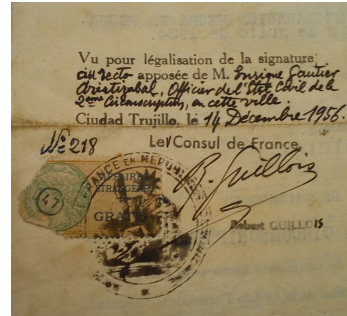 Vu pour légalisation de la signature
au recto apposée de M. Enrique Gautier
Aristizabal, Officier de l'Etat Civil de la
2ème Circonscription, en cette ville
Ciudad Trujillo, le 14 Décembre 1956.
Nº 218
Le Consul de France
AFFAIRES
ETRANGERES
GRATIS
R. Guillois
Robert GUILLOIS